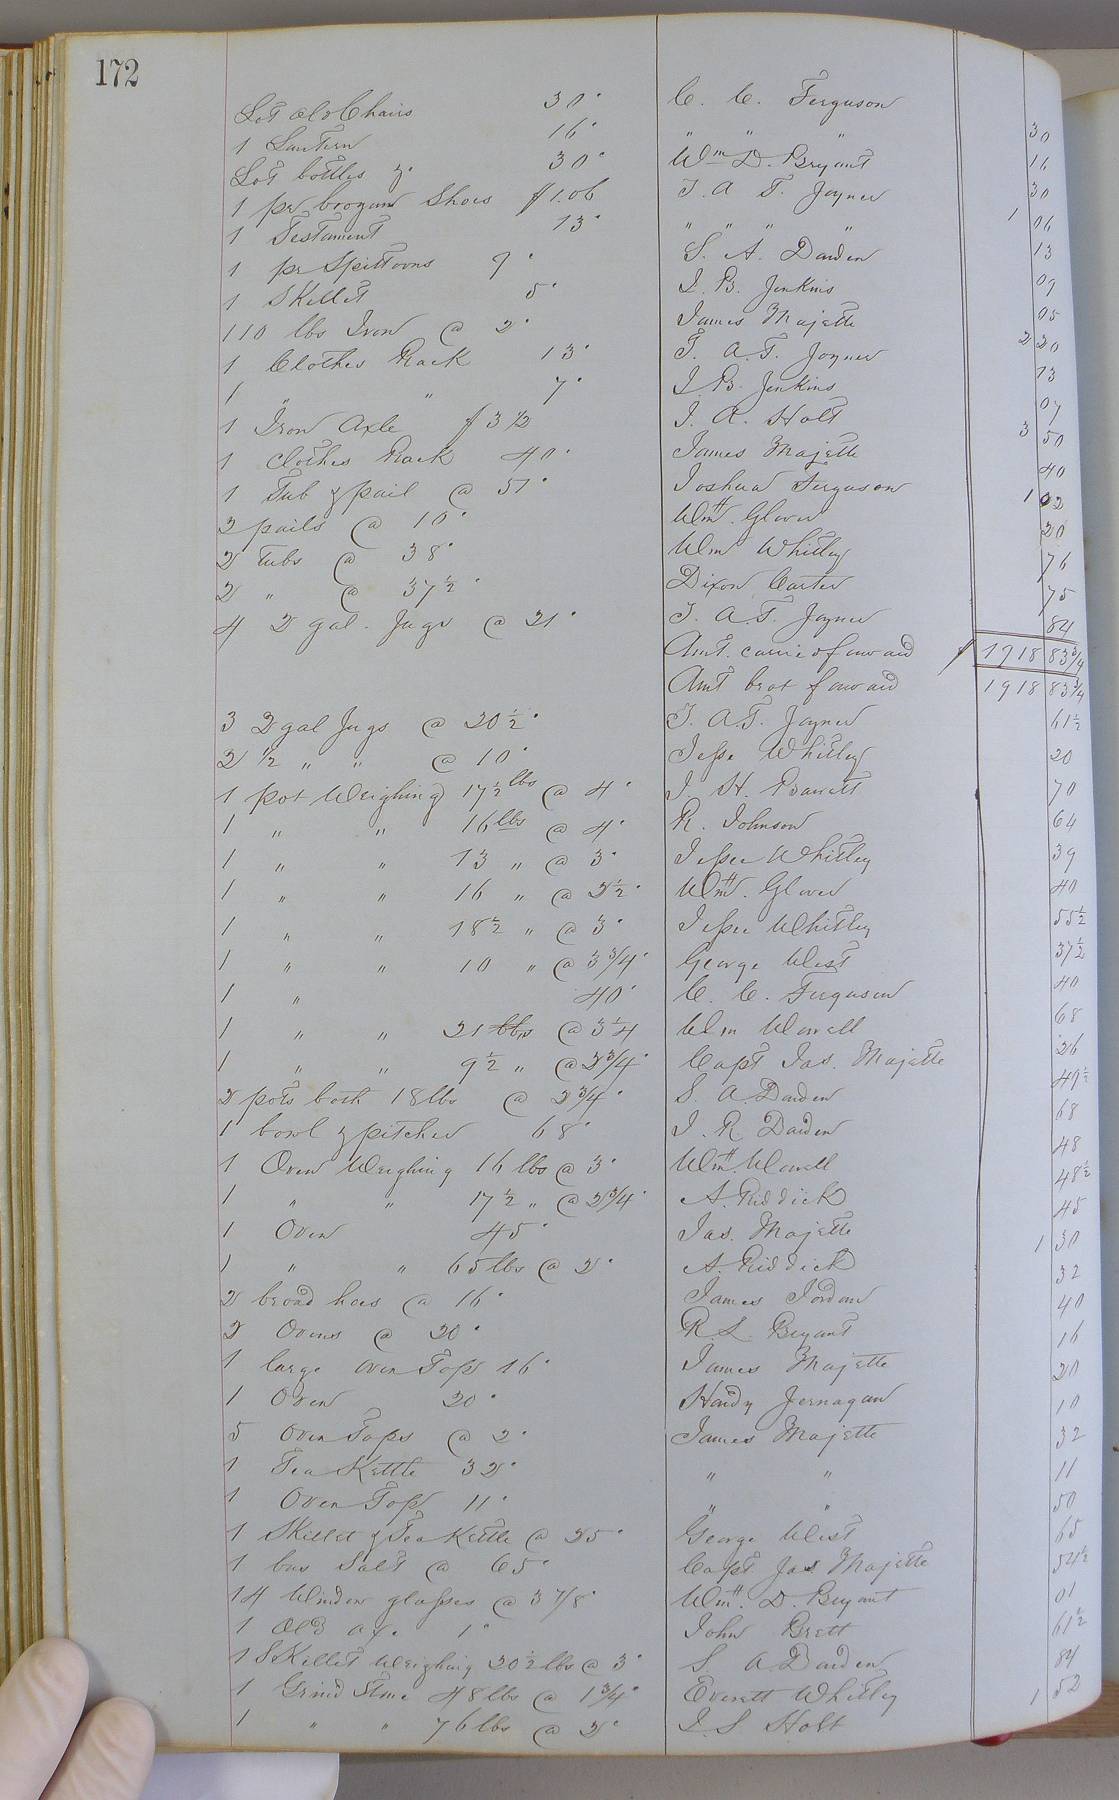 172
Lot old Chairs 30" C. C. Ferguson 30
1 Lantern 16" " " " 16
Lot bottles &c 30" Wm D. Bryant 30
1 pr brogan Shoes $1.06 T. A. T. Joyner 1 06
1 Testament 13" " " " " 13
1 pr Spittoons 9" S. A. Darden 09
1 Skillet 5" I. B. Jenkins 05
110 lbs Iron @ 2" James Majette 2 20
1 Clothes Rack 13" T. A. T. Joyner 13
1 " " 7" I. B. Jenkins 07
1 Iron Axle $3 1/2 I. R. Holt 3 50
1 Clothes Rack 40" James Majette 40
1 Tub & pail @ 51" Joshua Ferguson 1 02
2 pails @ 10" Wm H. Glover 20
2 Tubs @ 38" Wm Whitley 76
2 " @ 37 1/2" Dixon Carter 75
4 2 gal. Jugs @ 21" T. A. T. Joyner 84
Amt. carried forward $ 1918 83 3/4
Amt brot forward 1918 83 3/4
3 2 gal Jugs @ 20 1/2" T. A. T. Joyner 61 1/2
2 1/2 " " @ 10" Jesse Whitley 20
1 pot Weighing 17 1/2 lbs @ 4" J. H. Barrett 70
1 " " 16 lbs @ 4" R. Johnson 64
1 " " 13 " @ 3" Jesse Whitley 39
1 " " 16 " @ 2 1/2" Wm H. Glover 40
1 " " 18 1/2 " @ 3" Jesse Whitley 55 1/2
1 " " 10 " @ 3 3/4" George West 37 1/2
1 " 40" C. C. Ferguson 40
1 " " 21 lbs @ 3 1/4 Wm Worrell 68
1 " " 9 1/2 " @ 2 3/4" Capt Jas. Majette 26
2 pots both 18 lbs @ 2 3/4" S. A. Darden 49 1/2
1 bowl & pitcher 68" J. R Darden 68
1 Oven Weighing 16 lbs @ 3" Wm H Worrell 48
1 " " 17 1/2 " @ 2 3/4" A. Riddick 48 1/2
1 Oven 45" Jas. Majette 45
1 " " 65 lbs @ 2" A. Riddick 1 30
2 broad hoes @ 16" James Jordan 32
2 Ovens @ 20" R L Bryant 40
1 large oven Top 16" James Majette 16
1 Oven 20" Hardy Jernagan 20
5 Oven Tops @ 2" James Majette 10
1 Tea Kettle 32" " " 32
1 Oven Top 11" " " 11
1 Skillet & Tea Kettle @ 25" George West 50
1 bus Salt @ 65" Capt Jas Majette 65
14 Window glasses @ 3 7/8" Wm H. D. Bryant 54 1/2
1 Old ax. 1" John Brett 01
1 Skillet Weighing 20 1/2 lbs @ 3" S A Darden 61 1/2
1 Grind Stone 48 lbs @ 1 3/4" Everett Whitley 84
1 " " 76 lbs @ 2" I. S Holt 1 52